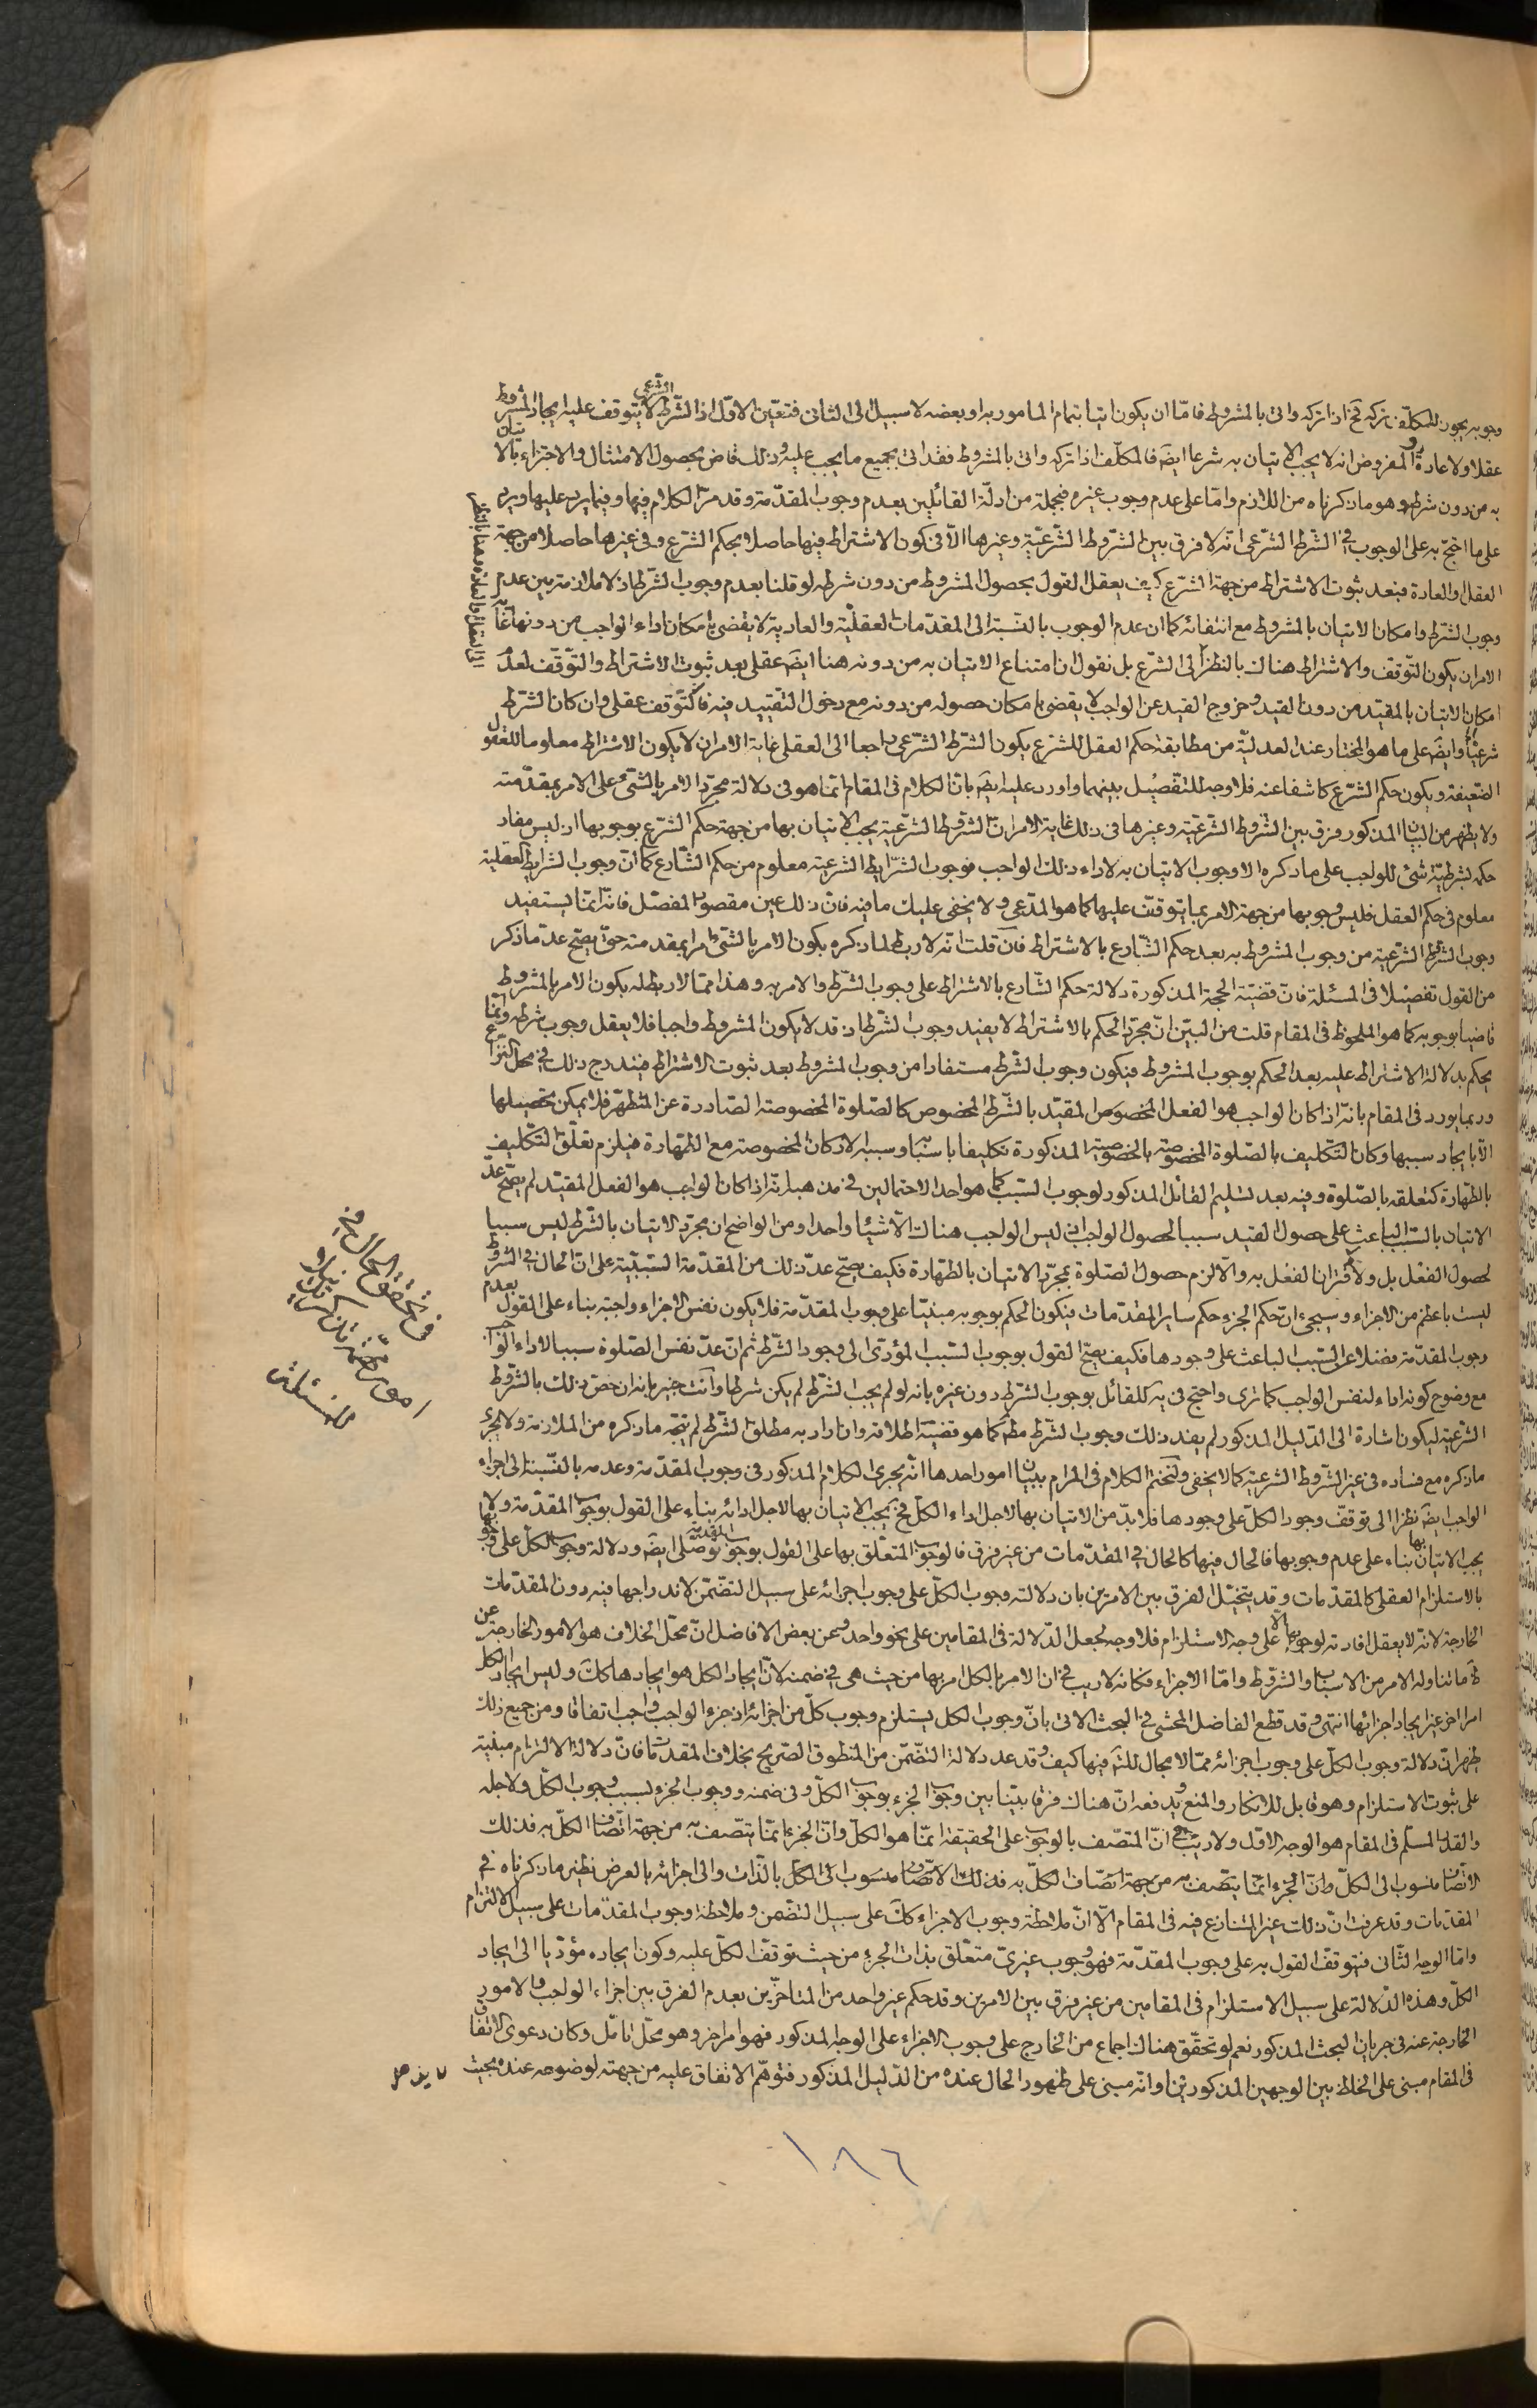 وجوبه يجوز للمكلّف تركه فح اذا تركه واتى بالمشروط فامّا ان يكون اتيا بتمام المامور به او بعضه لا سبيل الى الثانى فتعيّن الاوّل اذ الشّرط الشّرعى لا يتوقف عليه ايجاد المشروط
عقلا ولا عادة والمفروض انه لا يجب الاتيان به شرعا ايضَ فالمكلّف اذا تركه واتى بالمشروط فقد اتى بجميع ما يجب عليه وذلك قاض بحصول الامتثال والاجزاء بالاتيان
به من دون شرطه وهو ما ذكرناه من اللازم وامّا على عدم وجوب غيره فبجملة من ادلّة القائلين بعدم وجوب المقدّمة وقد مرّ الكلام فيها وفيما يرد عليها ويرد
على ما احتج به على الوجوب فى الشّرط الشّرعى انّه لا فرق بين الشّروط الشّرعيّة وغيرها الّا فى كون الاشتراط فيها حاصلا بحكم الشّرع وفى غيرها حاصلا من جهة
العقل او العادة فبعد ثبوت الاشتراط من جهة الشّرع كيف يعقل القول بحصول المشروط من دون شرطه لو قلنا بعدم وجوب الشّرط اذ لا ملازمة بين عدم
وجوب الشّرط وامكان الاتيان بالمشروط مع انتفائه كما ان عدم الوجوب بالنّسبة الى المقدّمات العقليّة والعادية لا يقضى بامكان اداء الواجب من دونها غاية
الامر ان يكون التّوقّف والاشتراط هناك بالنظر الى الشّرع بل نقول ان امتناع الاتيان به من دونه هنا ايضَ عقلى بعد ثبوت الاشتراط والتّوقّف لعدم
الى العقل او العادة وهنا بالنظر
امكان الاتيان بالمقيّد من دون القيد وخروج القيد عن الواجب لا يقضى بامكان حصوله من دونه مع دخول التّقييد فيه فالتّوقف عقلى وان كان الشّرط
شرعيّا وايضَ على ما هو المختار عند العدليّة من مطابقة حكم العقل للشّرع يكون الشّرط الشّرعى راجعا الى العقلى غاية الامر ان لا يكون الاشتراط معلوما للعقول
الضّعيفة ويكون حكم الشّرع كاشفا عنه فلا وجه للتّفصيل بينهما واورد عليه ايضَ بانّ الكلام فى المقام انّما هو فى دلالة مجرّد الامر بالشّئ على الامر بمقدّمته
ولا يظهر من البيان المذكور فرق بين الشّروط الشّرعيّة وغيرها فى ذلك غاية الامر انّ الشّروط الشّرعيّة يجب الاتيان بها من جهة حكم الشّرع بوجوبها اذ ليس مفاد
حكمه بشرطيّة شئ للواجب على ما ذكره الا وجوب الاتيان به لاداء ذلك الواجب فوجوب الشّرايط الشّرعية معلوم من حكم الشّارع كما انّ وجوب الشرايط العقلية
معلوم فى حكم العقل فليس وجوبها من جهة الامر بما يتوقّف عليها كما هو المدّعى ولا يخفى عليك ما فيه فانّ ذلك عين مقصود المفصّل فانّه انّما يستفيد
وجوب الشّرط الشّرعية من وجوب المشروط به بعد حكم الشّارع بالاشتراط فان قلت انّه لا ربط لما ذكره بكون الامر بالشّئ امرا بمقدمته حتّى يصحّ عدّ ما ذكر
من القول تفصيلا فى المسئلة فانّ قضيّة الحجة المذكورة دلالة حكم الشّارع بالاشتراط على وجوب الشّرط والامر به وهذا ممّا لا ربط له بكون الامر بالمشروط
قاضيا بوجوبه كما هو الملحوظ فى المقام قلت من البيّن انّ مجرّد الحكم بالاشتراط لا يفيد وجوب الشّرط اذ قد لا يكون المشروط واجبا فلا يعقل وجوب شرطه وانّما
يحكم بدلالة الاشتراط عليه بعد الحكم بوجوب المشروط فيكون وجوب الشّرط مستفادا من وجوب المشروط بعد ثبوت الاشتراط فيندرج ذلك فى محلّ النّزاع
وربما يورد فى المقام بانّه اذا كان الواجب هو الفعل المخصوص المقيّد بالشّرط المخصوص كالصّلوة المخصوصة الصّادرة عن المتطهّر فلا يمكن تحصيلها
الّا بايجاد سببها وكان التّكليف بالصّلوة المخصوصة بالخصوصيّة المذكورة تكليفا باسبابها وسببه الاركان المخصوصة مع الطّهارة فيلزم تعلّق التّكليف
بالطّهارة كتعلقه بالصّلوة وفيه بعد تسليم القائل المذكور لوجوب السّبب كما هو احد الاحتمالين فى مذهبه انّه اذا كان الواجب هو الفعل المقيّد لم يصحّ عدّ
الاتيان بالسّبب الباعث على حصول القيد سببا لحصول الواجب اذ ليس الواجب هناك الّا شيئا واحدا ومن الواضح ان مجرّد الاتيان بالشّرط ليس سببا
لحصول الفعل بل ولا لاقتران الفعل به والّا لزم حصول الصّلوة بمجرّد الاتيان بالطّهارة فكيف يصحّ عدّ ذلك من المقدّمة السّببيّة على انّ الحال فى الشّروط
ليست باعظم من الاجزاء وسيجئ انّ حكم الجزء حكم ساير المقدّمات فيكون الحكم بوجوبه مبنيّا على وجوب المقدّمة فلا يكون نفس الاجزاء واجبة بناء على القول بعدم
وجوب المقدّمة فضلا عن السّبب الباعث على وجودها فكيف يصحّ القول بوجوب السّبب المؤدّى الى وجود الشّرط ثم انّ عدّ نفس الصّلوة سببا لاداء الواجب
مع وضوح كونه اداء لنفس الواجب كما ترى واحتج فى يه للقائل بوجوب الشّرط دون غيره بانه لو لم يجب الشّرط لم يكن شرطا وانت خبير بانه ان خصّ ذلك بالشّروط
الشّرعية ليكون اشارة الى الدّليل المذكور لم يفد ذلك وجوب الشّرط مطَ كما هو قضيّة اطلاقه وان اراد به مطلق الشّرط لم يتّجه ما ذكره من الملازمة ولا يجرى
ما ذكره مع فساده فى غير الشّروط الشّرعية كما لا يخفى ولنختم الكلام فى المرام ببيان امور احدها انّه يجرى الكلام المذكور فى وجوب المقدّمة وعدمه بالنّسبة الى اجزاء
الواجب ايضَ نظرا الى توقّف وجود الكلّ على وجودها فلا بدّ من الاتيان بها لاجل اداء الكلّ فح يجب الاتيان بها لاجل ادائه بناء على القول بوجوب المقدّمة ولا
يجب الاتيان بها بناء على عدم وجوبها فالحال فيها كالحال فى المقدّمات من غير فرق فالوجوب المتعلّق بها على القول بوجوب المقدّمة توصّلى ايضَ ودلالة وجوب الكلّ على وجوبها
بالاستلزام العقلى كالمقدّمات وقد يتخيّل الفرق بين الامرين بان دلالة وجوب الكلّ على وجوب اجزائه على سبيل التضّمّن لاندراجها فيه دون المقدّمات
الخارجة لانّه لا يعقل افادته لوجوبها الّا على وجه الاستلزام فلا وجه لجعل الدّلالة فى المقامين على نحو واحد وعن بعض الافاضل انّ محلّ الخلاف هو الامور الخارجة عن
ما تناوله الامر من الاسباب والشّروط وامّا الاجزاء فكانه لا ريب فى ان الامر بالكل امر بها من حيث هى فى ضمنه لانّ ايجاد الكل هو ايجادها كك وليس ايجاد الكلّ
امرا اخر غير ايجاد اجزائها انتهى وقد قطع الفاضل المحشّى فى البحث الاتى بانّ وجوب الكل يستلزم وجوب كلّ من اجزائه اذ جزء الواجب واجب اتفاقا ومن جميع ذلك
ظهر انّ دلالة وجوب الكلّ على وجوب اجزائه ممّا لا مجال للشكّ فيها كيف وقد عد دلالة التضّمّن من المنطوق الصّريح بخلاف المقدّمات فانّ دلالة الالتزام مبنيّة
على ثبوت الاستلزام وهو قابل للانكار والمنع ويدفعه انّ هناك فرقا بيّنا بين وجوب الجزء بوجوب الكلّ وفى ضمنه ووجوب الجزء بسبب وجوب الكلّ ولاجله
والقدر المسلّم فى المقام هو الوجه الاوّل ولا ريب انّ المتصّف بالوجوب على الحقيقة انّما هو الكلّ وانّ الجزء انّما يتصّف به من جهة اتّصاف الكلّ به فذلك
الاتّصاف منسوب الى الكلّ وانّ الجزء انّما يتّصف به من جهة اتّصاف الكلّ به فذلك الاتّصاف منسوب الى الكلّ بالذّات والى اجزائه بالعرض نظير ما ذكرناه فى
المقدّمات وقد عرفت انّ ذلك غير المتنازع فيه فى المقام الّا انّ ملاحظة وجوب الاجزاء كك على سبيل التضّمن وملاحظة وجوب المقدّمات على سبيل الالتزام
وامّا الوجه الثّانى فيتوقّف القول به على وجوب المقدّمة فهو وجوب غيرىّ متعلّق بذات الجزء من حيث توقّف الكلّ عليه وكون ايجاده مؤدّيا الى ايجاد
الكلّ وهذه الدّلالة على سبيل الاستلزام فى المقامين من غير فرق بين الامرين وقد حكم غير واحد من المتاخّرين بعدم الفرق بين اجزاء الواجب والامور
الخارجة عنه فى جريان البحث المذكور نعم لو تحقّق هناك اجماع من الخارج على وجوب الاجزاء على الوجه المذكور فهو امر اخر وهو محلّ تامّل وكان دعوى الاتّفاق
فى المقام مبنى على الخلط بين الوجهين المذكورين او انّه مبنى على ظهور الحال عنده من الدّليل المذكور فتوهّم الاتّفاق عليه من جهته لوضوحه عنده بحيث
فى تحقيق الحال فى
امور مهمّة
للمسئلة
١٨٦